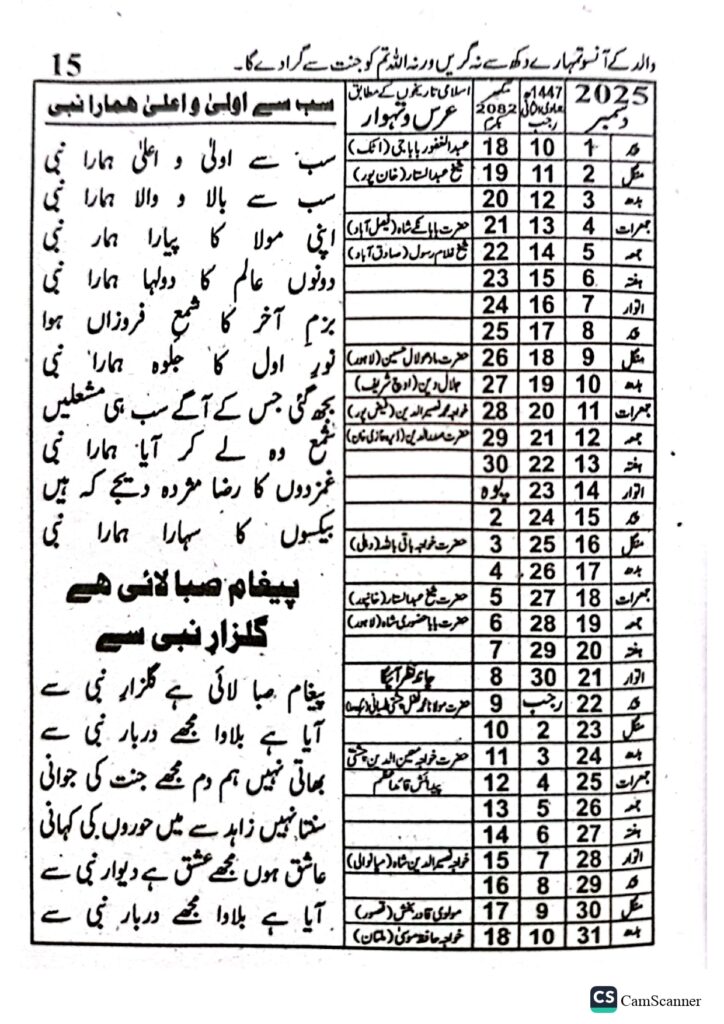 والد کے آنسو تمہارے دکھ سے نہ گریں ورنہ اللہ تم کو جنت سے گرا دے گا۔ 15
2025 دسمبر 1447ھ جمادی الثانی رجب مگھر 2082 بکرمی اسلامی تاریخوں کے مطابق عرس و تہوار
پیر 1 10 18 عبدالغفور باباجی (اٹک)
منگل 2 11 19 شیخ عبدالستار (خان پور)
بدھ 3 12 20
جمعرات 4 13 21 حضرت بابا کے شاہ (فیصل آباد)
جمعہ 5 14 22 شیخ غلام رسول (صادق آباد)
ہفتہ 6 15 23
اتوار 7 16 24
پیر 8 17 25
منگل 9 18 26 حضرت مادھو لال حسین (لاہور)
بدھ 10 19 27 جلال دین (اوچ شریف)
جمعرات 11 20 28 خواجہ محمد نصیر الدین (فیض پور)
جمعہ 12 21 29 حضرت صدرالدین (ڈیرہ غازی خان)
ہفتہ 13 22 30
اتوار 14 23 پوہ
پیر 15 24 2
منگل 16 25 3 حضرت خواجہ باقی باللہ (دہلی)
بدھ 17 26 4
جمعرات 18 27 5 حضرت شیخ عبدالستار (خانپور)
جمعہ 19 28 6 حضرت بابا حضوری شاہ (لاہور)
ہفتہ 20 29 7
اتوار 21 30 8 چاند نظر آئیگا
پیر 22 رجب 9 حضرت مولانا محمد چشتی
منگل 23 2 10
بدھ 24 3 11 حضرت خواجہ معین الدین چشتی
جمعرات 25 4 12 پیدائش قائداعظم
جمعہ 26 5 13
ہفتہ 27 6 14
اتوار 28 7 15 خواجہ نصیر الدین شاہ (میانوالی)
پیر 29 8 16
منگل 30 9 17 مولوی قادر بخش (قصور)
بدھ 31 10 18 خواجہ حافظ موسیٰ (ملتان)
سب سے اولیٰ و اعلیٰ ہمارا نبی
سب سے اولیٰ و اعلیٰ ہمارا نبی
سب سے بالا و والا ہمارا نبی
اپنی مولا کا پیارا ہمار نبی
دونوں عالم کا دولہا ہمارا نبی
بزمِ آخر کا شمعِ فروزاں ہوا
نورِ اول کا جلوہ ہمارا نبی
بجھ گئی جس کے آگے سب ہی مشعلیں
شمع وہ لے کر آیا ہمارا نبی
غمزدوں کا رضا مژدہ دیجے کہ ہیں
بیکسوں کا سہارا ہمارا نبی
پیغام صبا لائی ہے
گلزارِ نبی سے
پیغام صبا لائی ہے گلزارِ نبی سے
آیا ہے بلاوا مجھے دربار نبی سے
بھاتی نہیں ہم دم مجھے جنت کی جوانی
سنتا نہیں زاہد سے میں حوروں کی کہانی
عاشق ہوں مجھے عشق ہے دیوار نبی سے
آیا ہے بلاوا مجھے دربار نبی سے
CS CamScanner